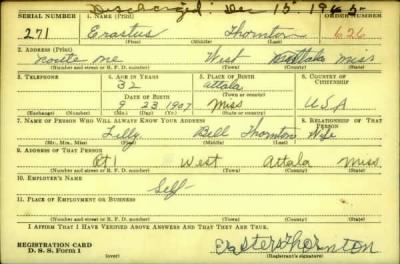 Discharged: Dec 15 1945
SERIAL NUMBER 1. NAME (Print) ORDER NUMBER
271 Erastus Thornton 626
(First) (Middle) (Last)
2. ADDRESS (Print)
Route one West Attala Miss
(Number and street or R. F. D. number) (Town) (County) (State)
3. TELEPHONE 4. AGE IN YEARS 5. PLACE OF BIRTH 6. COUNTRY OF CITIZENSHIP
32 Attala
DATE OF BIRTH (Town or county)
9 23 1907 Miss USA
(Exchange) (Number) (Mo.) (Day) (Yr.) (State or country)
7. NAME OF PERSON WHO WILL ALWAYS KNOW YOUR ADDRESS 8. RELATIONSHIP OF THAT PERSON
Lilly Bell Thornton Wife
(Mr., Mrs., Miss) (First) (Middle) (Last)
9. ADDRESS OF THAT PERSON
Rt 1 West Attala Miss.
(Number and street or R. F. D. number) (Town) (County) (State)
10. EMPLOYER'S NAME
Self
11. PLACE OF EMPLOYMENT OR BUSINESS
(Number and street or R. F. D. number) (Town) (County) (State)
I AFFIRM THAT I HAVE VERIFIED ABOVE ANSWERS AND THAT THEY ARE TRUE.
REGISTRATION CARD
D. S. S. Form 1 (over) (Registrant's signature)